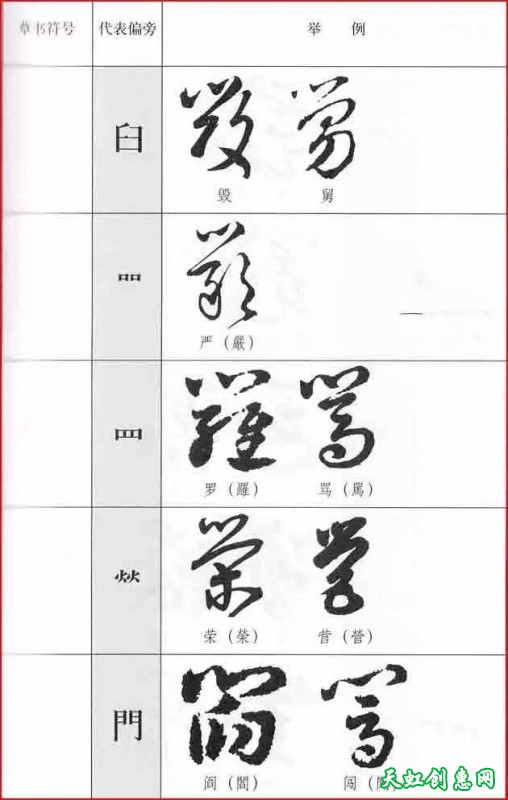 草书符号 代表偏旁 举例
臼
毁 舅
吅
严（嚴）
罒
罗（羅） 骂（罵）
炏
荣（榮） 营（營）
門
阎（閻） 闯（闖）
天虹创惠网